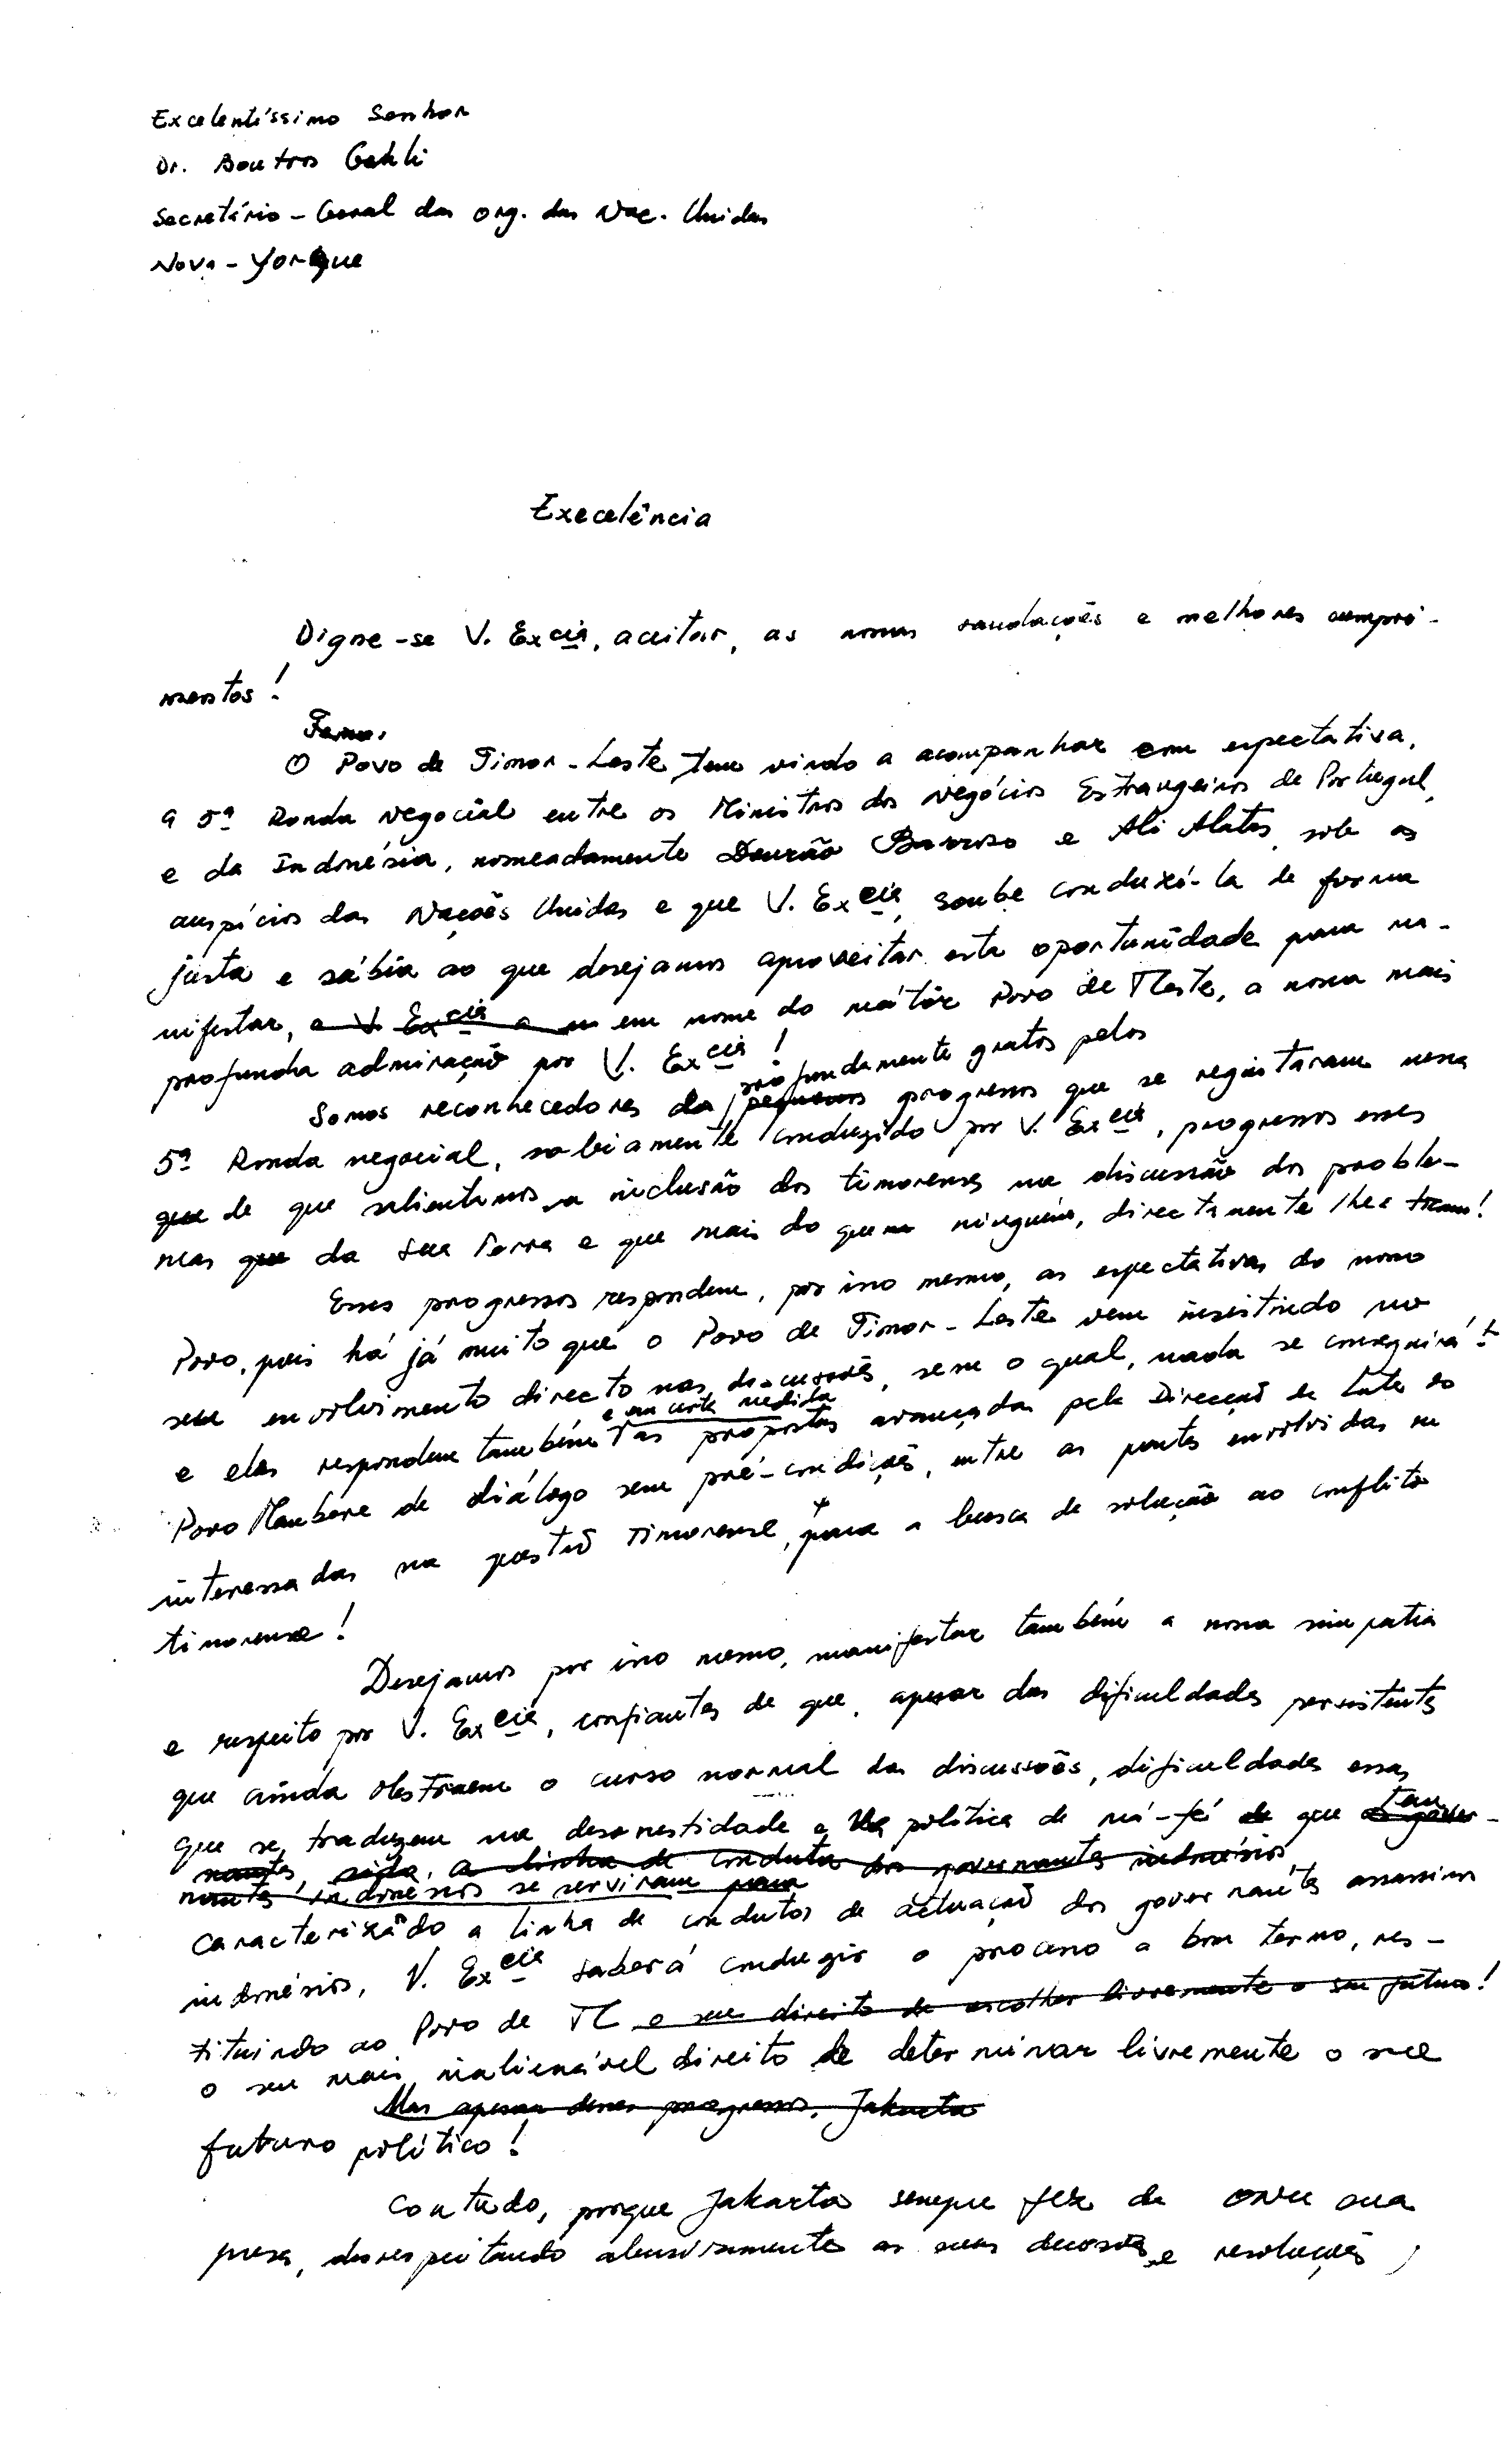 Excelentíssimo Senhor
Dr. Boutros Gahli
Secretário-Geral das Org. das Nac. Unidas
Nova-Yorque
Execelência
Digne-se V. Excia, aceitar, as nossas saudações e melhores cumpri-
mentos!
O Povo de Timor-Leste tem vindo a acompanhar com espectativa,
a 5ª Ronda negocial entre os Ministros dos Negócios Estrangeiros de Portugal,
e da Indonésia, nomeadamente Dourão Barroso e Ali Alatas, sob os
auspícios das Nações Unidas e que V. Excia, soube conduzí-la de forma
justa e sábia ao que desejamos aproveitar esta oportunidade para ma-
nifestar, a V. Excia a em nome do mártir Povo de TLeste, a nossa mais
profunda admiração por V. Excia!
profundamente gratos pelos
Somos reconhecedores da pequenos progressos que se registaram nessa
5ª Ronda negocial, sabiamente conduzido por V. Excia, progressos esses
que de que salientamos a inclusão dos timorenses na discussão dos proble-
mas que da sua Terra e que mais do que ninguém, directamente lhes tocam!
Esses progressos respondem, por isso mesmo, as espectativas do nosso
Povo, pois há já muito que o Povo de Timor-Leste vem insistindo no
seu envolvimento directo nas discussões, sem o qual, nada se conseguirá!
e em certa medida
e eles respondem também as propostas avançadas pela Direcção da Luta do
Povo Maubere de diálogo sem pré-condições, entre as partes envolvidas ou
interessadas na questão timorense, para a busca de solução ao conflito
timorense!
Desejamos por isso mesmo, manifestar também a nossa simpatia
e respeito por V. Excia, confiantes de que, apesar das dificuldades persistentes
que ainda obstruem o curso normal das discussões, dificuldades essas
que se traduzem na desonestidade e na política de má-fé de que os gover-
tem
nantes, sido, a linha de conduta dos governantes indonésios
nantes indonésios se serviram para
caracterizado a linha de condutas de actuação dos governantes assassinos
indonésios, V. Excia saberá conduzir o processo a bom termo, res-
tituindo ao Povo de TL o seu direito de escolher livremente o seu futuro!
o seu mais inalienável direito de determinar livremente o seu
Mas apesar desses progressos, Jakarta
futuro político!
Contudo, porque Jakarta sempre fez da ONU sua
presa, desrespeitando abusivamente as suas decisões e resoluções,